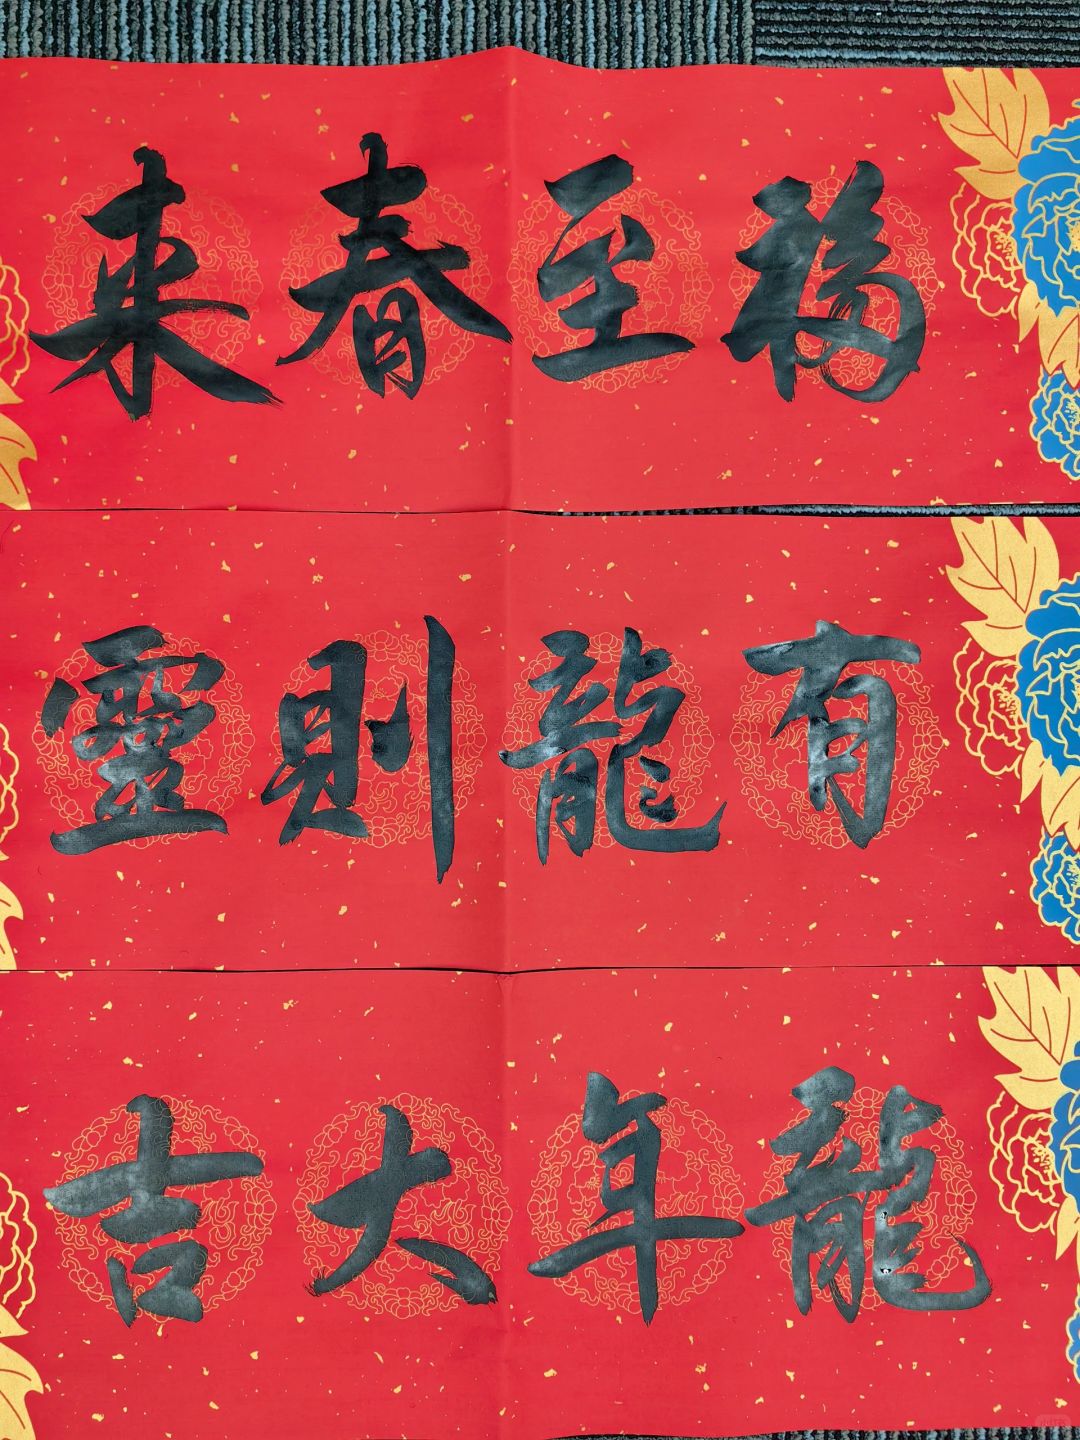 福至春来
有龍則靈
龍年大吉